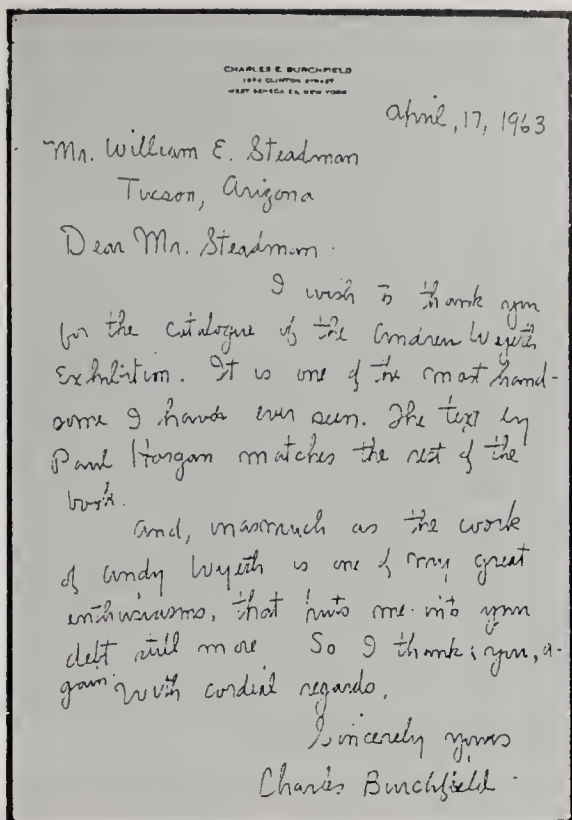 CHARLES E. BURCHFIELD
1074 CLINTON STREET
WEST SENECA 24, NEW YORK
April, 17, 1963
Mr. William E. Steadman
Tucson, Arizona
Dear Mr. Steadman.
I wish to thank you
for the catalogue of the Andrew Wyeth
Exhibition. It is one of the most hand-
some I have ever seen. The text by
Paul Horgan matches the rest of the
book.
And, inasmuch as the work
of Andy Wyeth is one of my great
enthusiasms, that puts me into your
debt still more So I thank you, a-
gain with cordial regards,
Sincerely yours
Charles Burchfield